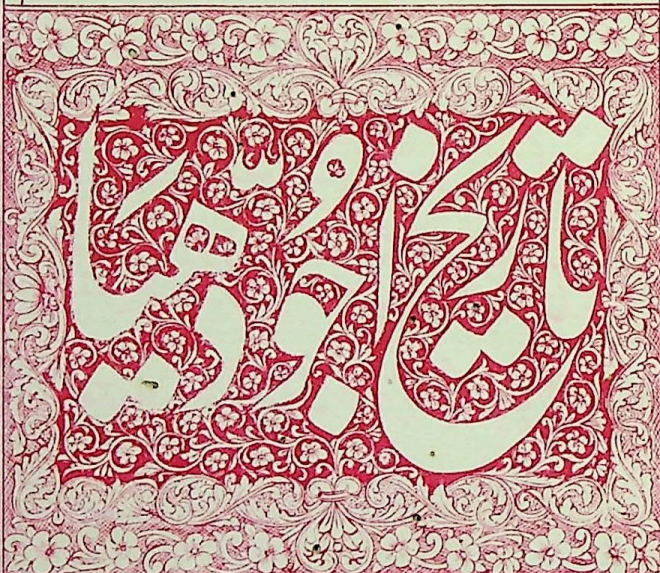 تاریخ اجُودّھیا